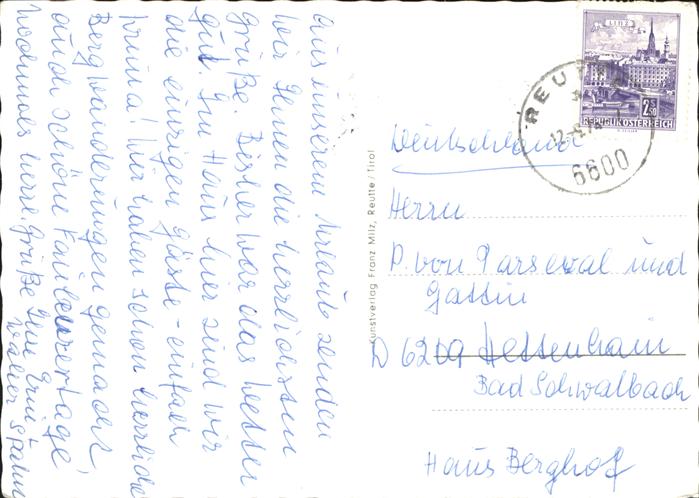 aus unserem Urlaub senden
wir Ihnen die herzlichsten
Grüße. Bisher war das Wetter
gut. Im Haus hier sind wir
die einzigen Gäste - einfach
prima! Wir haben schon herrliche
Bergwanderungen gemacht
auch schöne Faulenzertage,
Nochmals herzl. Grüße Ihre Erni u
Walter
LINZ
2S50
REPUBLIK ÖSTERREICH
REUTTE
6600
Kunstverlag Franz Milz, Reutte/Tirol
Deutschland
Herrn
P. von Parseval und
Gattin
D 6209 Hettenhain
Bad Schwalbach
Haus Berghof